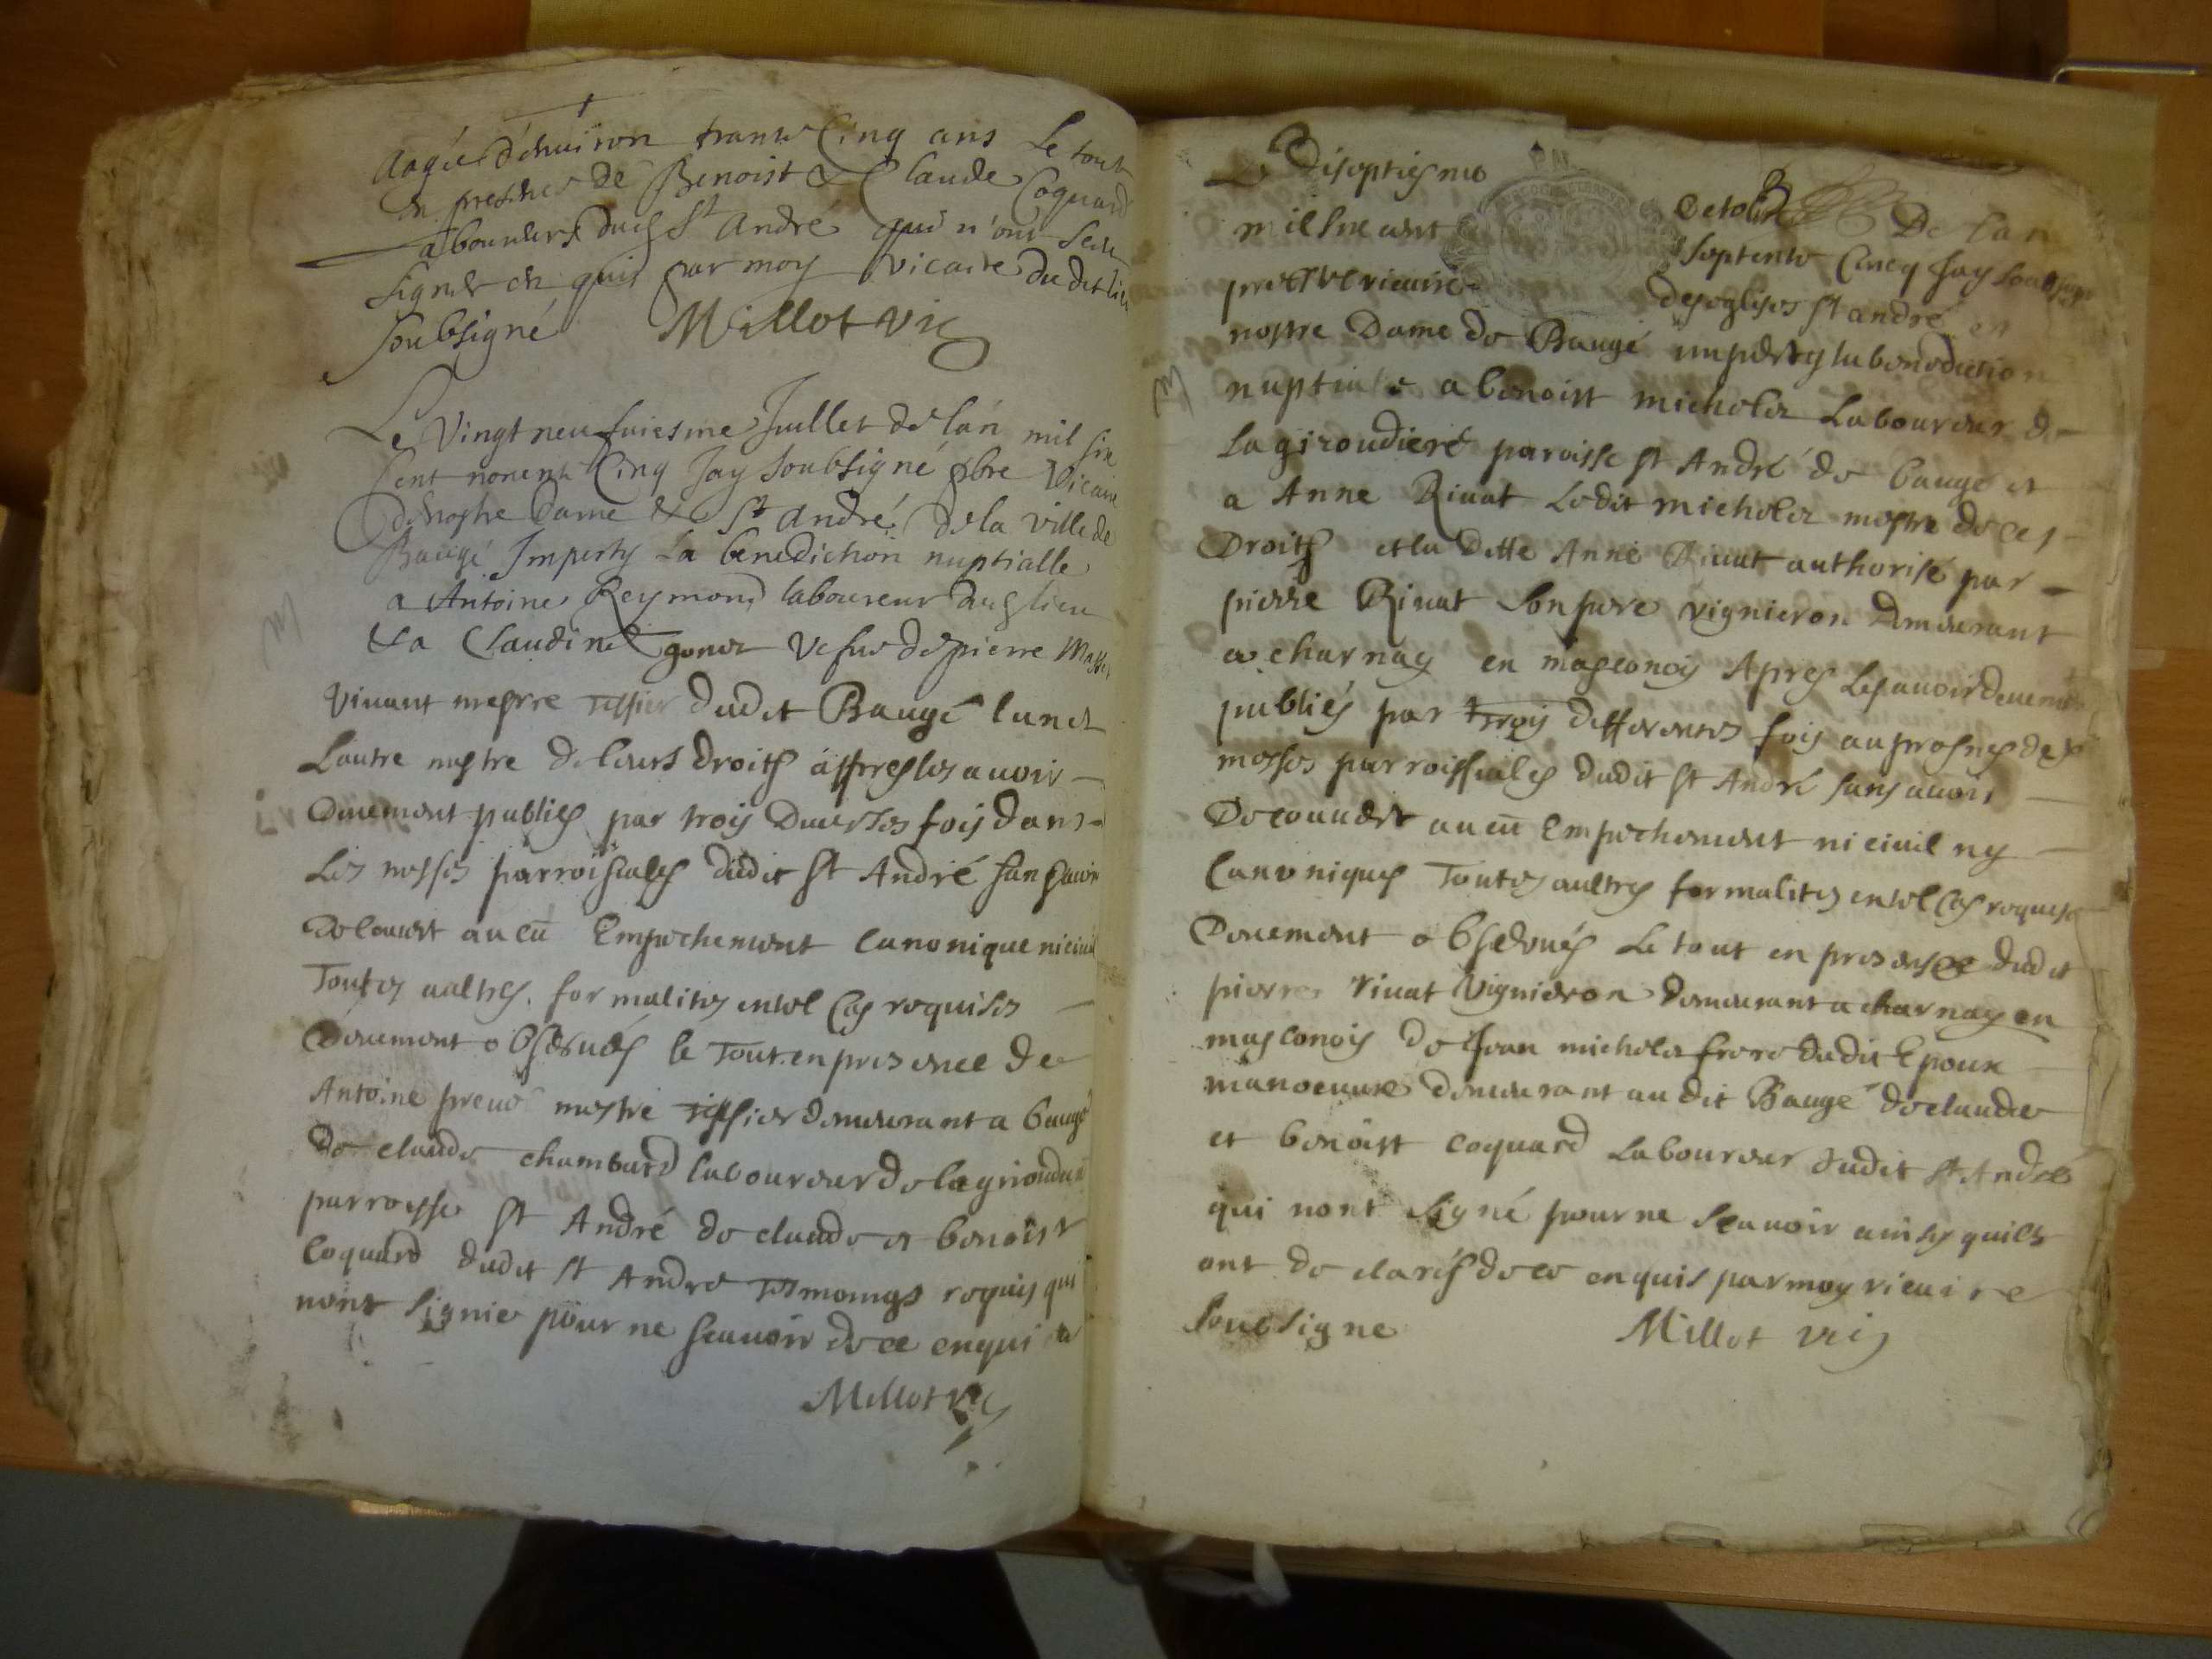 Aagée d'enuiron trante Cinq ans Le tout
en presence de Benoist & Claude Coquard
Laboureurs dud St André qui n'ont sceu
signer en quis par moy vicaire du dit lieu
soubsigné Millot vic
Le vingt neufuiesme Juillet de lan mil six
Cent nonente Cinq Jay soubsigné pbre vicaire
de nostre dame & St André de la ville de
Baugé Imparty La benediction nuptialle
a Antoine Reymond laboureur dud lieu
& a Claudine gonet vefue de pierre
viuant mestre tissier dudit Baugé lun et
Lautre mestre de leurs droits aspres les auoir
Duement publies par trois Diuerses fois dans
Les messes parroisciales dudit St André sans auoir
Decouuert aucū Empechement Canonique ni ciuil
Toutes aultres formalites en tel Cas requises
Duement obseruées le Tout en presence de
Antoine preuo mestre tissier demeurant a baugé
de claude chambard laboureur de la
parroesse St André de claude et benoist
Coquard dudit St Andre tesmoings requis qui
nont signie pour ne scauoir de ce enqui
Millot vic
Le Diseptiesme Octobre De lan
mil six cent septente Cincq Jay soubsigné
prestre vicaire des eglises St andré et
nostre Dame de Baugé imparty la benediction
nuptiale a benoist micholet Laboureur de
la giroudiere paroisse St André de baugé et
a Anne Riuat Ledit micholet mestre de ces
Droits et la ditte Anne Riuat authorisé par
pierre Riuat son pere vignieron demeurant
a charnay en masconois Apres Les auoir deuement
publiés par trois differentes fois au prosnes des
messes parroissiales dudit St André sans auoir
Decouuert aucū Empechement ni ciuil ny
Canoniques Toutes aultres formalites en tel Cas requises
Douement obseruées Le tout en presence dudit
pierre riuat vignieron demeurant a charnay en
masconois de Jean micholet frere dudit Epoux
manoeuure demeurant au dit Baugé de claude
et benoist coquard Laboureur dudit St André
qui nont signé pour ne scauoir ainsy quils
ont declarés de ce enquis par moy vicaire
soubsigne Millot vic